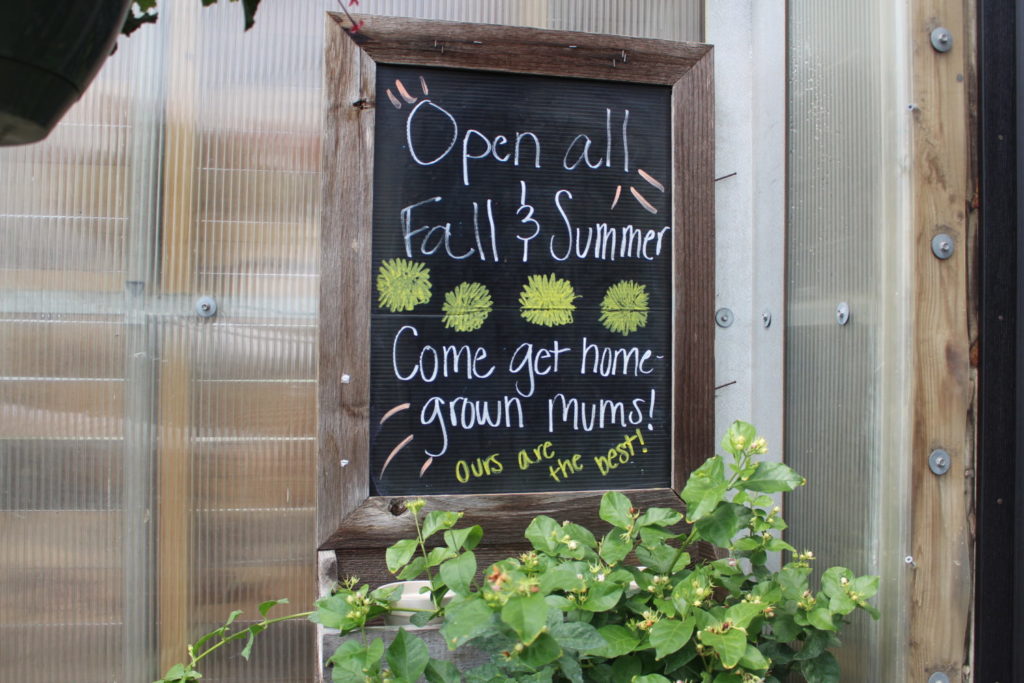 Open all
Fall & Summer
Come get home-
grown mums!
ours are
the best!